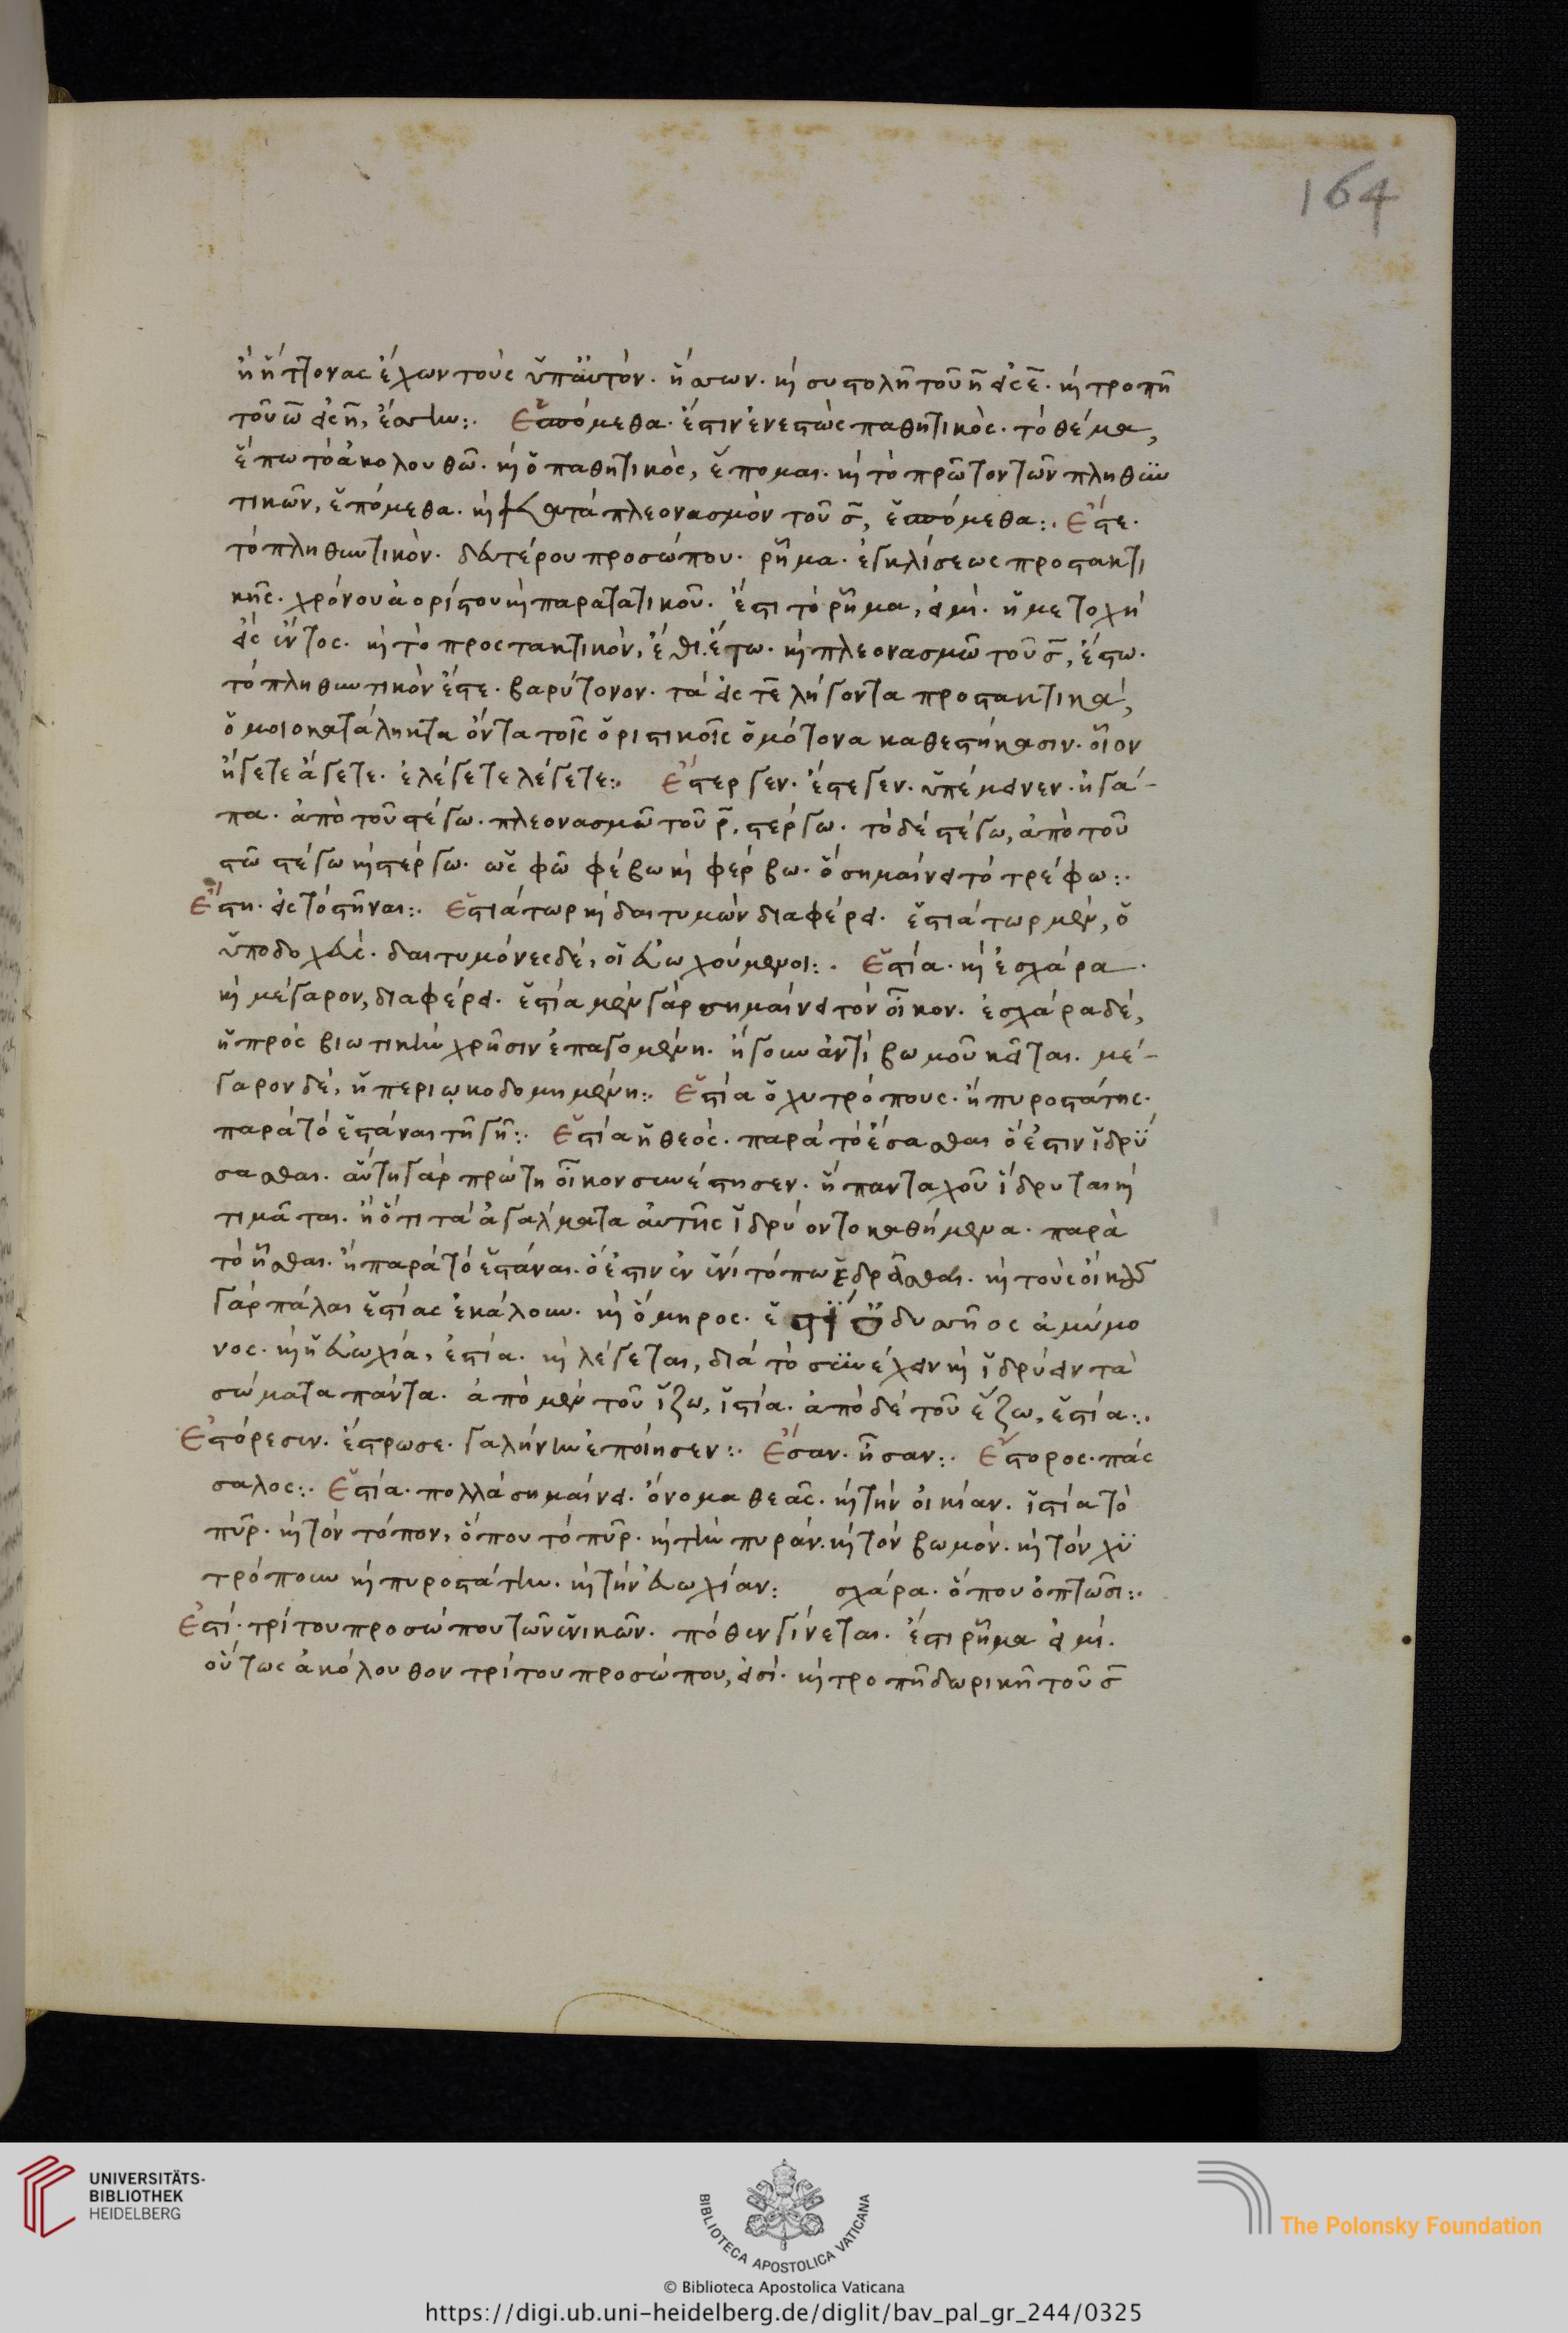 164
ἢ ἥττονας ἔχων τοὺς ὑπ' αὐτόν. ἥσσων. καὶ συστολῆ τοῦ η εἰς ε. καὶ τροπῆ
τοῦ ω εἰς η, ἕσσην:. Ἑσσόμεθα. ἔστιν ἐνεστὼς παθητικὸς. τὸ θέμα,
ἕπω τὸ ἀκολουθῶ. καὶ ὁ παθητικὸς, ἕπομαι. καὶ τὸ πρῶτον τῶν πληθυν
τικῶν, ἑπόμεθα. καὶ πλεονασμὸν τοῦ σ, ἑσσόμεθα:. Ἔστε.
τὸ πληθυντικὸν. δευτέρου προσώπου. ῥῆμα. ἐγκλίσεως προστακτι
κῆς. χρόνου ἀορίστου καὶ παρατατικοῦ. ἔστι τὸ ῥῆμα, εἰμὶ. ἡ μετοχὴ
εἰς ἔντος. καὶ τὸ προστακτικὸν, ἔθι. ἔτω. καὶ πλεονασμῶ τοῦ σ, ἔστω.
τὸ πληθυντικὸν ἔστε. βαρύτονον. τὰ εἰς τε λήγοντα προστακτικά,
ὁμοιοκατάληκτα ὄντα τοῖς ὁριστικοῖς ὁμότονα καθεστήκασιν. οἷον
ἤγετε ἄγετε. ἐλέγετε λέγετε:. Ἔστεργεν. ἔστεγεν. ὑπέμεινεν. ἠγά-
πα. ἀπὸ τοῦ στέγω. πλεονασμῶ τοῦ ρ, στέργω. τὸ δὲ στέγω, ἀπὸ τοῦ
στῶ στέγω καὶ στέργω. ὡς φῶ φέβω καὶ φέρβω. ὃ σημαίνει τὸ τρέφω:.
Ἔστη. εἰς τὸ στῆναι:. Ἑστιάτωρ καὶ δαιτυμὼν διαφέρει. ἑστιάτωρ μὲν, ὁ
ὑποδοχεὺς. δαιτυμόνες δὲ, οἱ εὐωχούμενοι:. Ἑστία. καὶ ἐσχάρα.
καὶ μέγαρον, διαφέρει. ἑστία μὲν γὰρ σημαίνει τὸν οἶκον. ἐσχάρα δὲ,
ἡ πρὸς βιωτικὴν χρῆσιν ἐπαγομένη. ἤγουν ἀντὶ βωμοῦ κεῖται. μέ-
γαρον δὲ, ἡ περιῳκοδομημένη:. Ἑστία ὁ χυτρόπους. ἢ πυροστάτης.
παρὰ τὸ ἑστάναι τῆ γῆ:. Ἑστία ἡ θεὸς. παρὰ τὸ ἕσασθαι ὅ ἐστιν ἱδρύ
σασθαι. αὕτη γὰρ πρώτη οἶκον συνέστησεν. ἢ πανταχοῦ ἵδρυται καὶ
τιμᾶται. ἢ ὅτι τὰ ἀγάλματα αὐτῆς ἱδρύοντο καθήμενα. παρὰ
τὸ ἧσθαι. ἢ παρὰ τὸ ἑστάναι. ὅ ἐστιν ἐν ἑνὶ τόπω ἑδρεῖσθαι. καὶ τοὺς οἴκους
γὰρ πάλαι ἑστίας ἐκάλουν. καὶ ὅμηρος. ἑστίη ὀδυσσῆος ἀμύμο
νος. καὶ ἡ εὐωχία, ἑστία. καὶ λέγεται, διὰ τὸ συνέχειν καὶ ἱδρύειν τὰ
σώματα πάντα. ἀπὸ μὲν τοῦ ἵζω, ἱστία. ἀπὸ δὲ τοῦ ἕζω, ἑστία:.
Ἐστόρεσεν. ἔστρωσε. γαλήνην ἐποίησεν:. Ἔσαν. ἦσαν:. Ἕστορος. πάσ
σαλος:. Ἑστία. πολλὰ σημαίνει. ὄνομα θεᾶς. καὶ τὴν οἰκίαν. ἱστία τὸ
πῦρ. καὶ τὸν τόπον, ὅπου τὸ πῦρ. καὶ τὴν πυράν. καὶ τὸν βωμόν. καὶ τὸν χυ
τρόπουν καὶ πυροστάτην. καὶ τὴν εὐωχίαν: σχάρα. ὅπου ὀπτῶσι:.
Ἐστί. τρίτου προσώπου τῶν ἑνικῶν. πόθεν γίνεται. ἔστι ῥῆμα εἰμί.
οὕτως ἀκόλουθον τρίτου προσώπου, εἰσὶ. καὶ τροπῆ δωρικῆ τοῦ σ
UNIVERSITÄTS-
BIBLIOTHEK
HEIDELBERG
BIBLIOTECA APOSTOLICA VATICANA
The Polonsky Foundation
© Biblioteca Apostolica Vaticana
https://digi.ub.uni-heidelberg.de/diglit/bav_pal_gr_244/0325